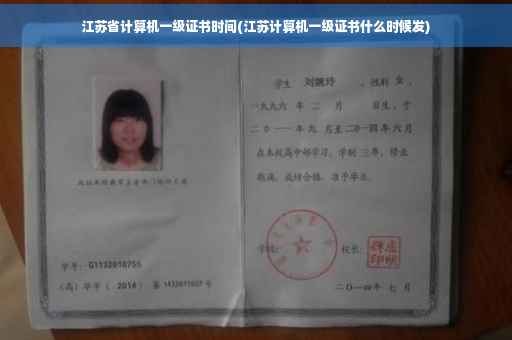 江苏省计算机一级证书时间(江苏计算机一级证书什么时候发)
学生 刘婉玲 ,性别 女 ,
一九九六 年 二 月 日生,于
二〇一一年九 月至二〇一四年六月
在本校高中部学习,学制 三年,修业
期满,成绩合格,准予毕业。
学号: G1132010755
(高) 毕字 ( 2014 ) 第 1432011027 号
学校:
校长:
二〇一四年 七 月